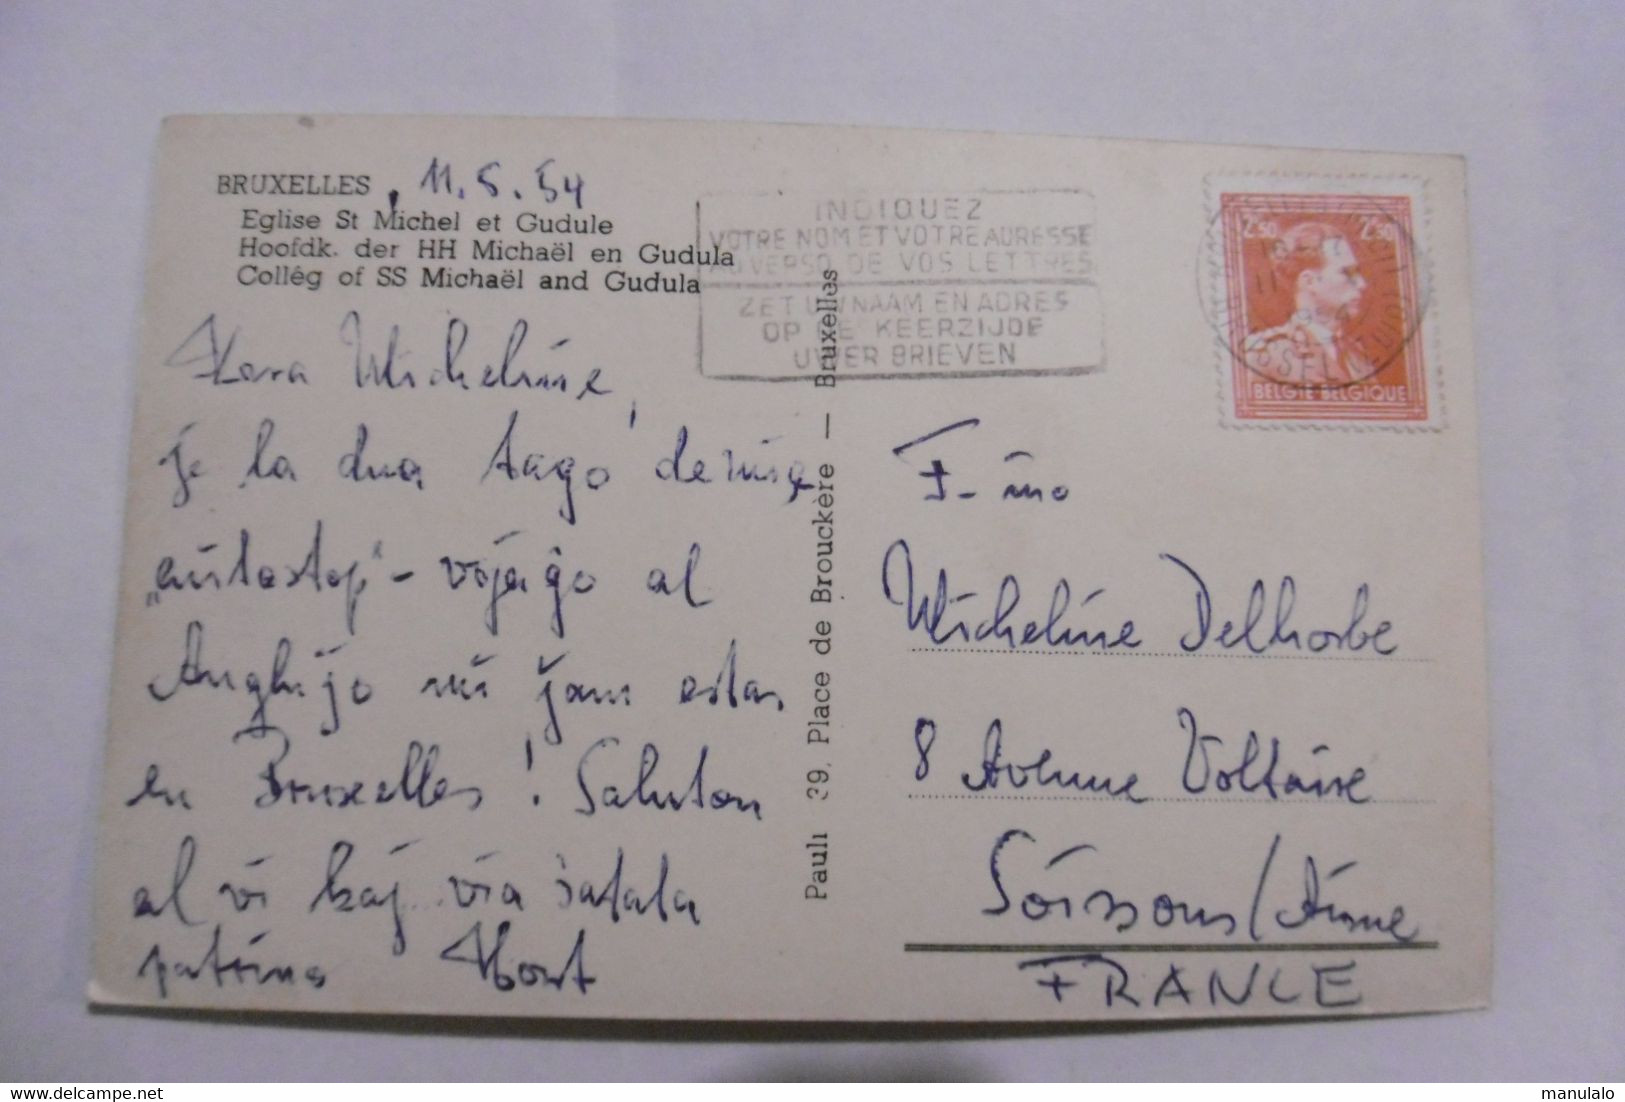 BRUXELLES, 11.5.54
Eglise St Michel et Gudule
Hoofdk. der HH Michaël en Gudula
Collég of SS Michaël and Gudula
INDIQUEZ
VOTRE NOM ET VOTRE ADRESSE
AU VERSO DE VOS LETTRES
ZET UW NAAM EN ADRES
OP DE KEERZIJDE
UWER BRIEVEN
2.50 2.50
BELGIE-BELGIQUE
Kara Micheline,
je la dua tago de nia
„aŭtostop"- vojaĝo al
Anglujo ni jam estas
en Bruxelles! Saluton
al vi kaj via ŝatata
patrino Horst
Pauli 39, Place de Brouckère — Bruxelles
F-ino
Micheline Delhorbe
8 Avenue Voltaire
Soissons/Aisne
FRANCE
manulalo